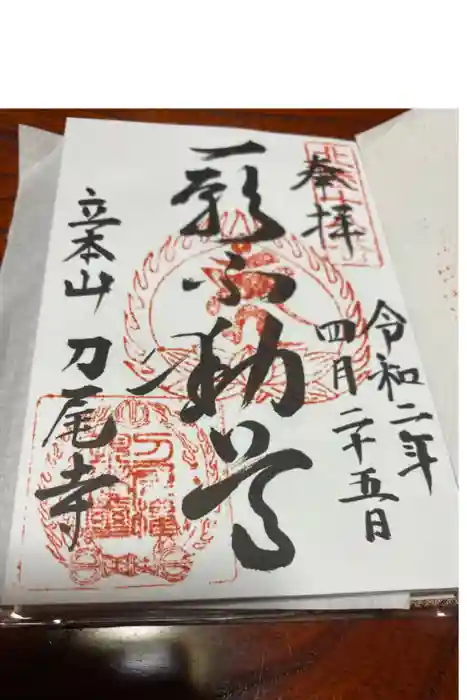 奉拝
令和二年
四月二十五日
不動尊
立本山 刀尾寺